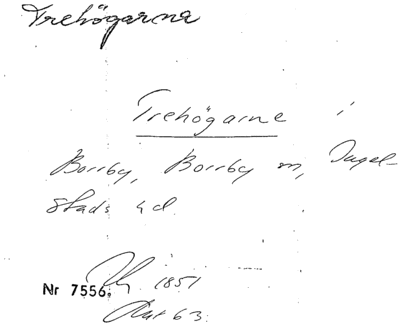 Trehögarna
Trehögarne i
Borrby, Borrby sn, Ingel-
stads hd
1851
Nr 7556.
Akt 63.